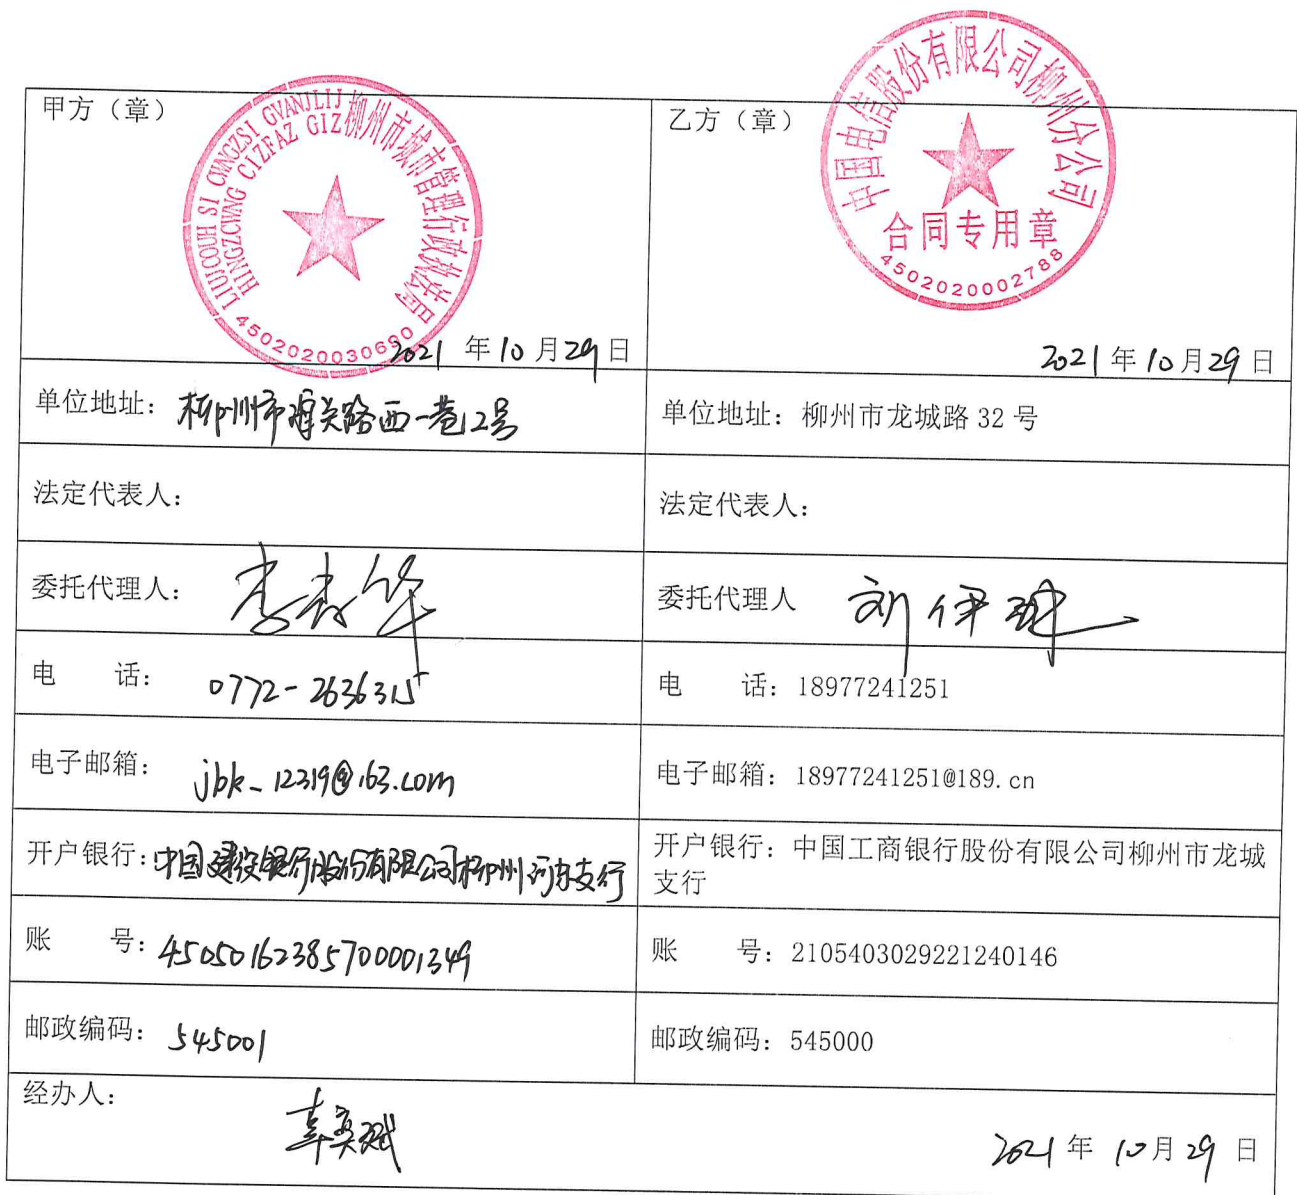 甲方（章）
LIUJCOUH SI CWNGZSI GVANJLIJ
HINGZCWNG CIZFAZ GIZ
柳州市城市管理行政执法局
4502020030690
2021 年 10 月 29 日
乙方（章）
中国电信股份有限公司柳州分公司
合同专用章
4502020002788
2021 年 10 月 29 日
单位地址：柳州市潭头路西一巷12号
单位地址：柳州市龙城路 32 号
法定代表人：
法定代表人：
委托代理人：
委托代理人 刘伊琳
电 话：0772-2636315
电 话：18977241251
电子邮箱：jbk_12319@163.com
电子邮箱：18977241251@189.cn
开户银行：中国建设银行股份有限公司柳州河东支行
开户银行：中国工商银行股份有限公司柳州市龙城
支行
账 号：45050162385700001349
账 号：2105403029221240146
邮政编码：545001
邮政编码：545000
经办人：
2021 年 10 月 29 日